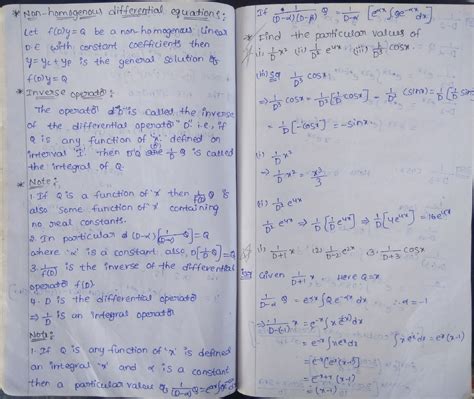 * Non-homogenous differential equations:
Let f(D)y=Q be a non-homogenous linear
D.E with constant coefficients then
y=yc+yp is the general solution of
f(D)y=Q
* Inverse operator:
The operator D⁻¹ is called the inverse
of the differential operator D i.e., if
Q is any function of 'x' defined on
interval 'I'. Then 1/D Q is called
the integral of Q.
* Note:
1. If Q is a function of 'x' then 1/f(D) Q is
also some function of x containing
no real constants.
2. In particular (D-α)[1/(D-α) Q]=Q
where 'α' is a constant also, D[1/D Q]=Q
3. 1/f(D) is the inverse of the differential
operator f(D).
4. D is the differential operator
⇒ 1/D is an integral operator
Note:
1. If Q is any function of 'x' is defined
an integral 'x' and α is a constant
then a particular value of 1/(D-α) Q = e^αx ∫Q e^-αx dx
If 1/(D-α)(D-β) Q = 1/D-α [e^βx ∫Q e^-βx dx]
* Find the particular values of
(i) 1/D x² (ii) 1/D² e^4x (iii) 1/D³ cosx
(iii) Sol 1/D³ cosx
⇒ 1/D³ cosx = 1/D² [∫cosx] = 1/D² (sinx) = 1/D [1/D sinx]
= 1/D [-cosx] = -sinx
(i) 1/D x²
⇒ 1/D x² = x³/3
1/D² e^4x ⇒ 1/D [1/D e^4x] ⇒ 1/D [4e^4x] = 16e^4x
(1) 1/D+1 x (2) 1/D-2 e^2x (3) 1/D+3 cosx
Sol Given 1/D+1 x Here Q=x
1/D-α Q = e^αx ∫Q e^-αx dx ∴ α=-1
⇒ 1/D-(-1) x = e^-x ∫x e^x dx ∫x e^x dx = e^x(x-1)
= e^-x [e^x(x-1)]
= e^-x+x (x-1)
= (x-1)